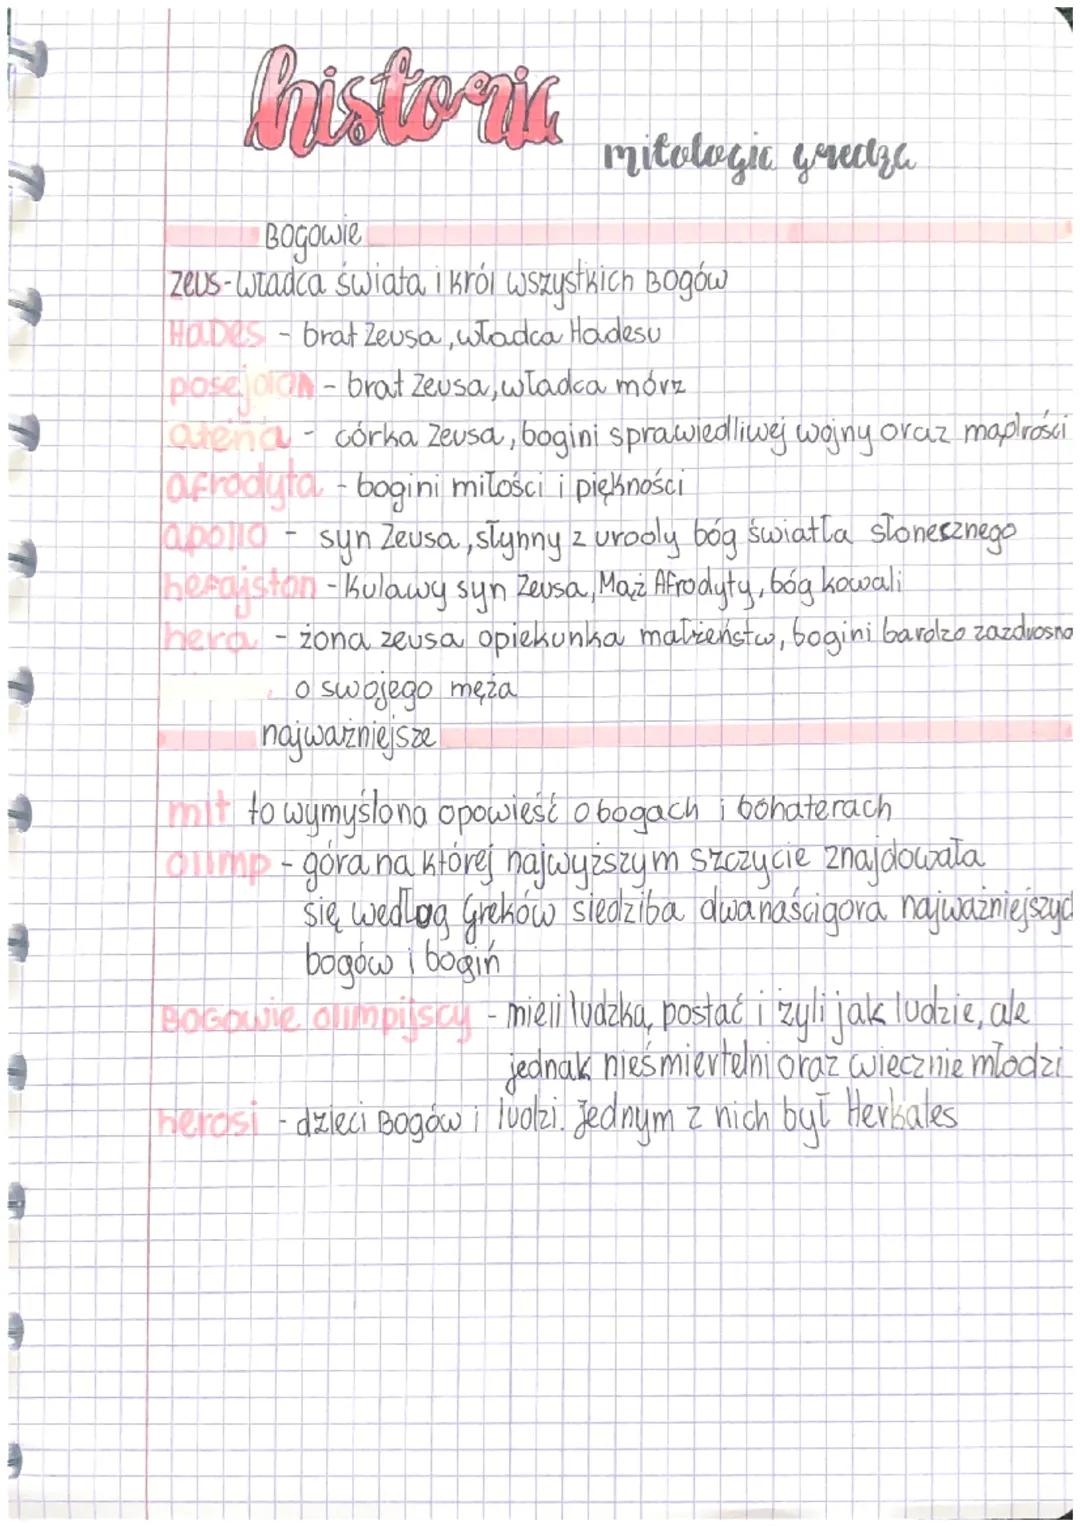 historia
mitologia grecka
Bogowie
Zeus - władca świata i król wszystkich Bogów
Hades - brat Zeusa, władca Hadesu
posejdon - brat Zeusa, władca mórz
atena - córka Zeusa, bogini sprawiedliwej wojny oraz mądrości
afrodyta - bogini miłości i piękności
apollo - syn Zeusa, słynny z urody bóg światła słonecznego
hefajston - kulawy syn Zeusa, Mąż Afrodyty, bóg kowali
hera - żona zeusa opiekunka małżeństw, bogini bardzo zazdrosna
o swojego męża
najważniejsze
mit to wymyślona opowieść o bogach i bohaterach
olimp - góra na której najwyższym szczycie znajdowała
się według Greków siedziba dwanaścigora najważniejszych
bogów i bogiń
Bogowie olimpijscy - mieli ludzką postać i żyli jak ludzie, ale
jednak nieśmiertelni oraz wiecznie młodzi
herosi - dzieci Bogów i ludzi. Jednym z nich był Herkales